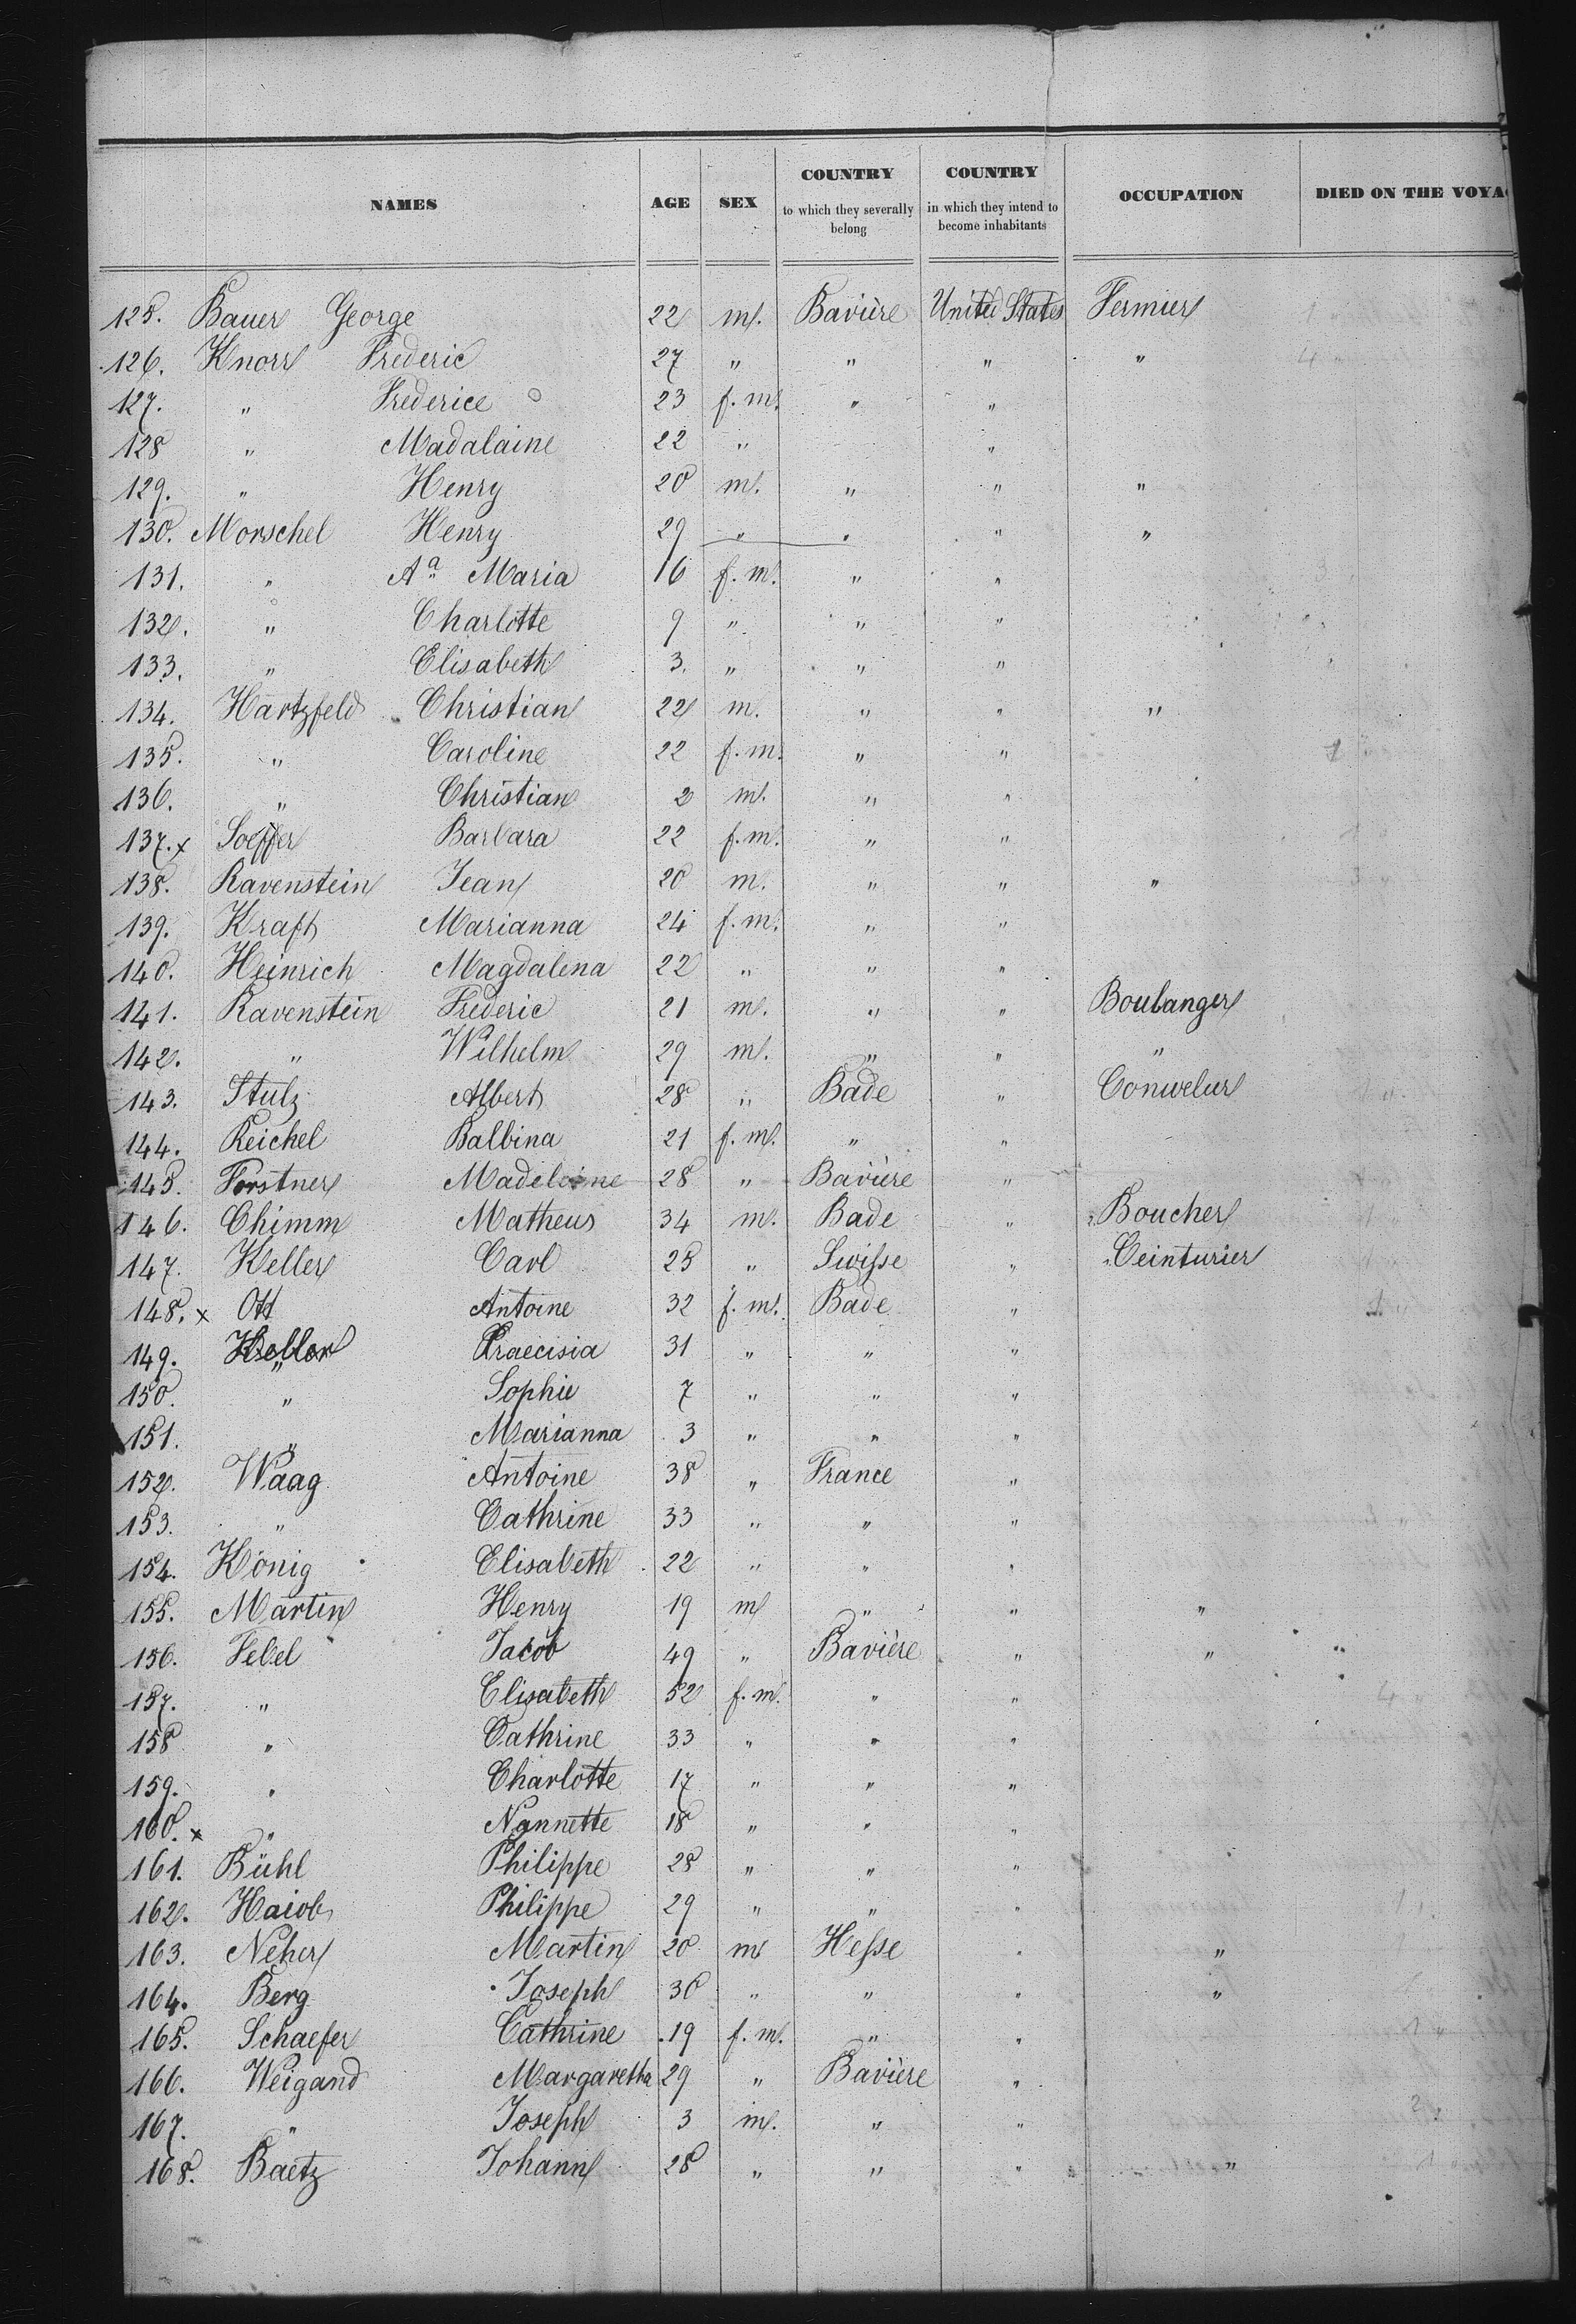 NAMES AGE SEX COUNTRY to which they severally belong COUNTRY in which they intend to become inhabitants OCCUPATION DIED ON THE VOYA
125. Bauer George 22 m. Bavière United States Fermier
126. Knorr Frederic 27 " " " "
127. " Frederice 23 f. m. " "
128 " Madalaine 22 " "
129. " Henry 20 m. " " "
130. Morschel Henry 29 " " " "
131. " Aª Maria 16 f. m. " "
132. " Charlotte 9 " " "
133. " Elisabeth 3. " " "
134. Hartzfeld Christian 22 m. " " "
135. " Caroline 22 f. m. " "
136. " Christian 2 m. " "
137. x Soeffer Barbara 22 f. m. " "
138. Ravenstein Jean 20 m. " " "
139. Kraft Marianna 24 f. m. " "
140. Heinrich Magdalena 22 " " "
141. Ravenstein Frederic 21 m. " " Boulanger
142. " Wilhelm 29 m. " " "
143. Stulz Albert 28 " Bade "
144. Reichel Balbina 21 f. m. " "
145. Forstner Madeleine 28 " Bavière "
146. Chimm Matheus 34 m. Bade " Boucher
147. Keller Carl 25 " Swisse " Ceinturier
148. x Ott Antoine 32 f. m. Bade "
149. Keller Praecisia 31 " " "
150. " Sophie 7 " " "
151. " Marianna 3 " " "
152. Waag Antoine 38 " France "
153. " Cathrine 33 " " "
154. König Elisabeth 22 " " "
155. Martin Henry 19 m " " "
156. Febel Jacob 49 " Bavière " "
157. " Elisabeth 52 f. m. " "
158 " Cathrine 33 " " "
159. " Charlotte 17 " " "
160. x " Nannette 18 " " "
161. Bühl Philippe 28 " " "
162. Haiob Philippe 29 " " "
163. Neher Martin 20 m Hesse " "
164. Berg Joseph 30 " " " "
165. Schaefer Cathrine 19 f. m. " "
166. Weigand Margaretha 29 " Bavière "
167. " Joseph 3 m. " "
168. Baetz Johann 28 " " " "